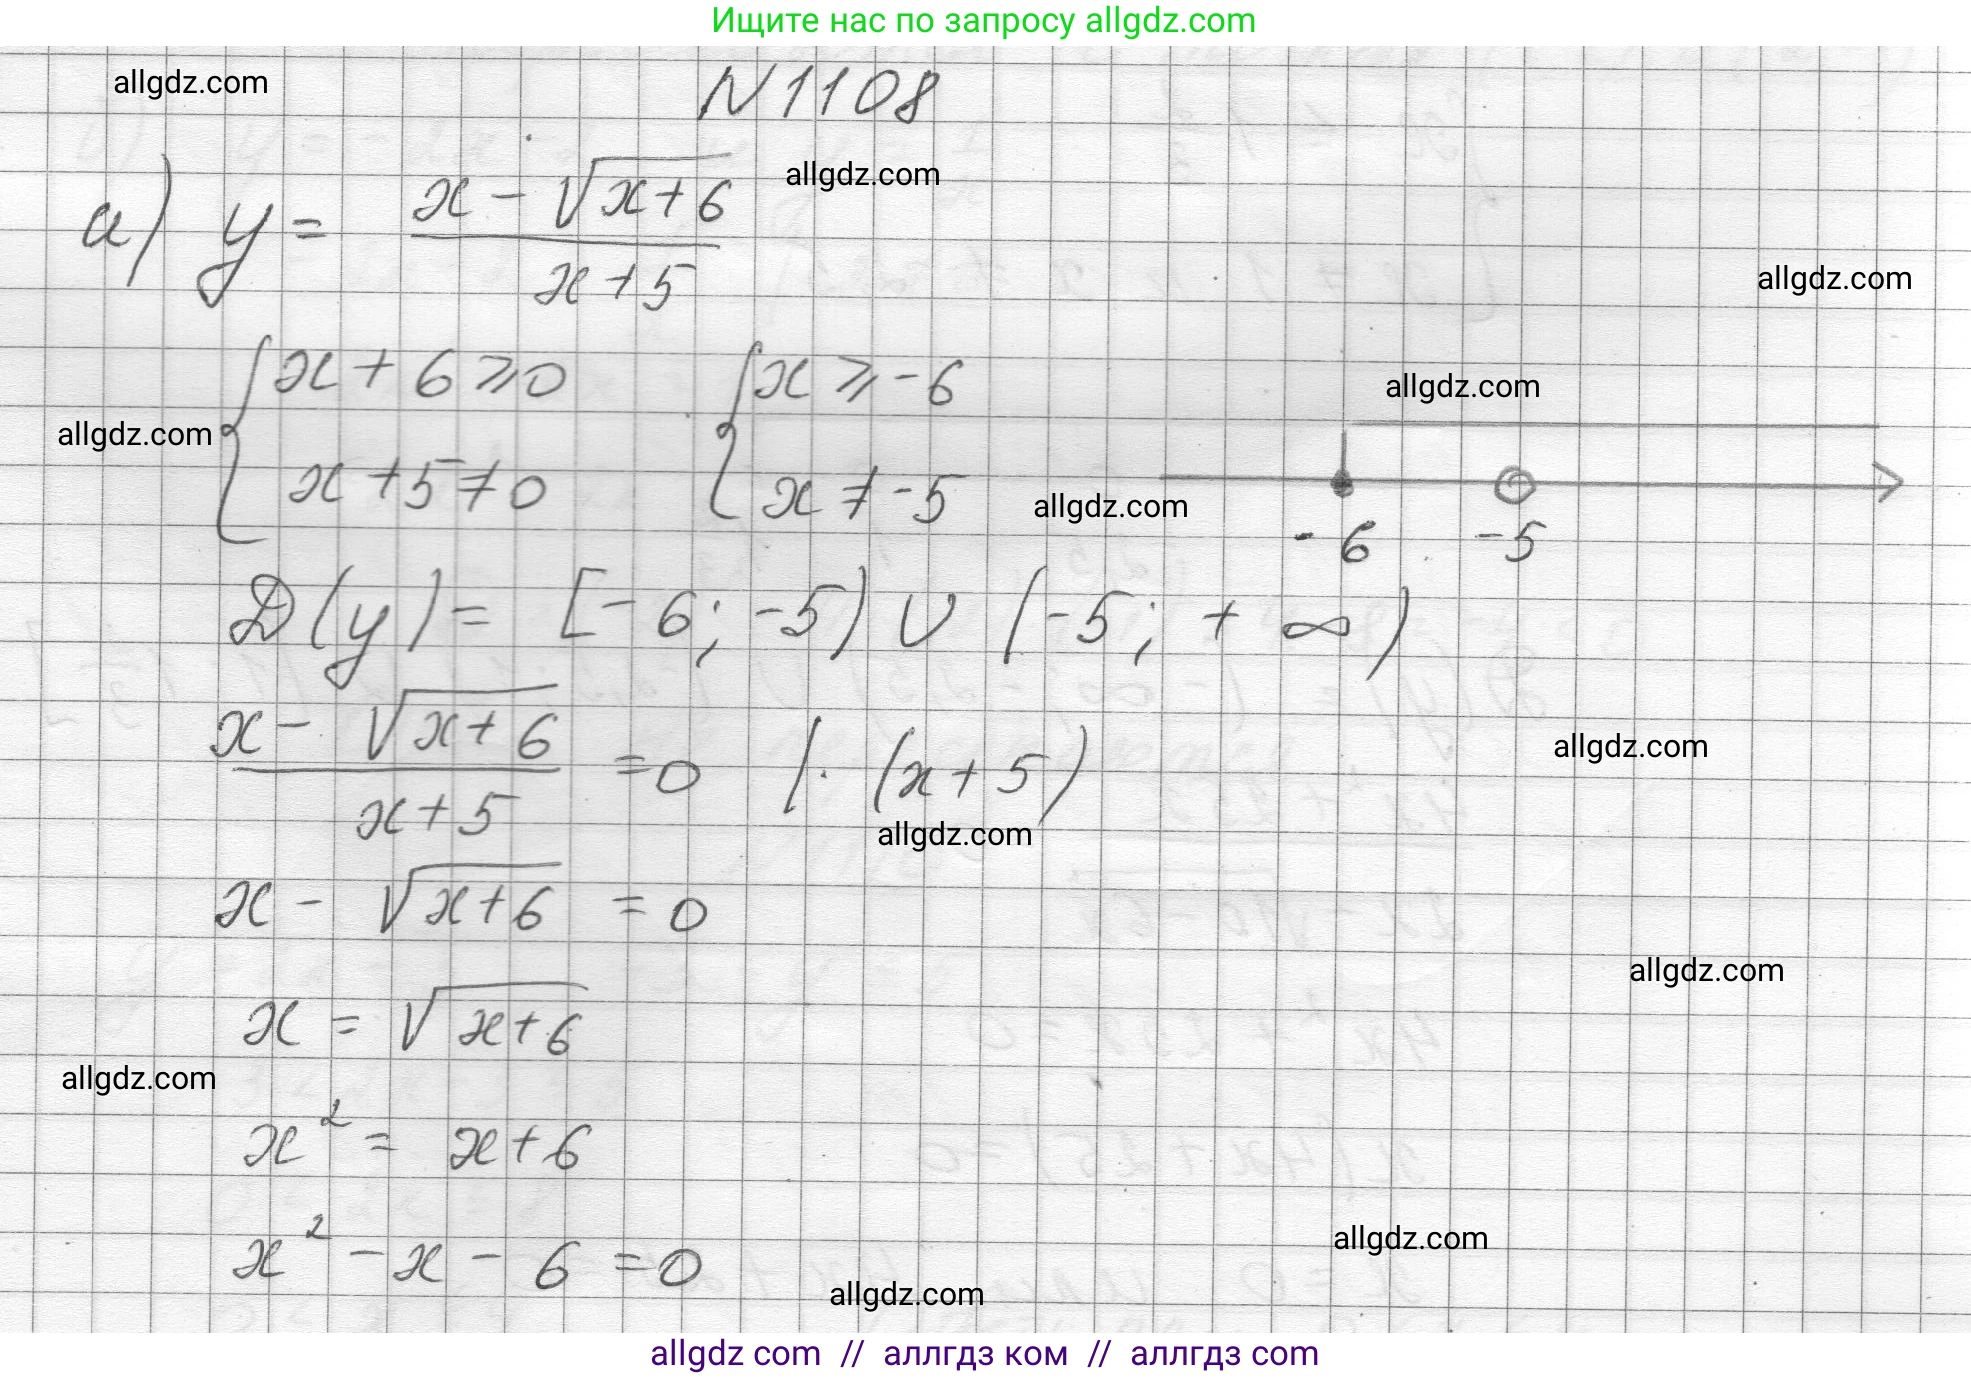 Ищите нас по запросу allgdz.com
allgdz.com
N 1108
allgdz.com
а) y = \frac{x - \sqrt{x+6}}{x+5}
allgdz.com
{ x + 6 ⩾ 0 { x ⩾ -6
allgdz.com
allgdz.com
x + 5 ≠ 0 x ≠ -5
allgdz.com
-6 -5
D(y) = [-6; -5) ∪ (-5; +∞)
\frac{x - \sqrt{x+6}}{x+5} = 0 | · (x+5)
allgdz.com
allgdz.com
x - \sqrt{x+6} = 0
allgdz.com
x = \sqrt{x+6}
allgdz.com
x² = x+6
allgdz.com
x² - x - 6 = 0
allgdz.com
allgdz com // аллгдз ком // аллгдз com